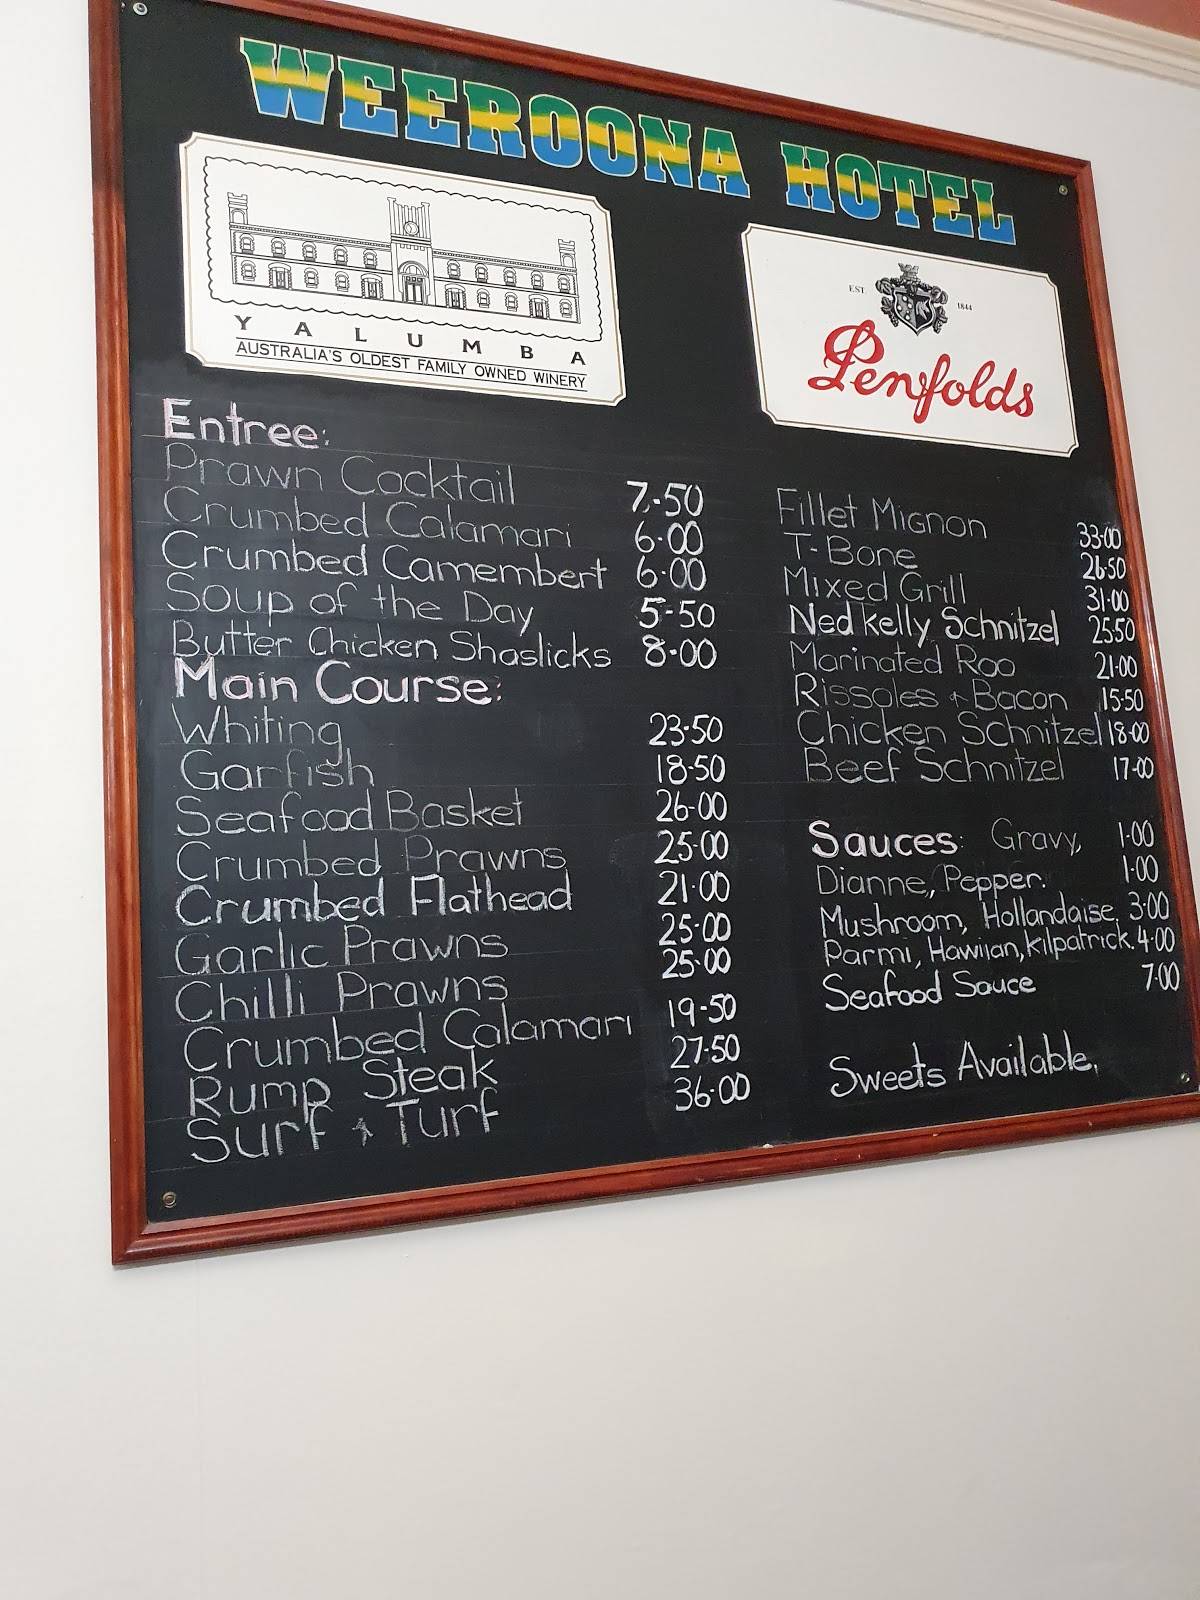 WEEROONA HOTEL
YALUMBA
AUSTRALIA'S OLDEST FAMILY OWNED WINERY
EST. 1844
Penfolds
Entree:
Prawn Cocktail 7.50
Crumbed Calamari 6.00
Crumbed Camembert 6.00
Soup of the Day 5-50
Butter Chicken Shaslicks 8.00
Main Course:
Whiting 23.50
Garfish 18.50
Seafood Basket 26.00
Crumbed Prawns 25.00
Crumbed Flathead 21.00
Garlic Prawns 25.00
Chilli Prawns 25.00
Crumbed Calamari 19.50
Rump Steak 27.50
Surf & Turf 36.00
Fillet Mignon 33.00
T-Bone 26.50
Mixed Grill 31.00
Ned Kelly Schnitzel 25.50
Marinated Roo 21.00
Rissoles & Bacon 15.50
Chicken Schnitzel 18.00
Beef Schnitzel 17.00
Sauces: Gravy, 1.00
Dianne, Pepper. 1.00
Mushroom, Hollandaise. 3.00
Parmi, Hawiian, Kilpatrick. 4.00
Seafood Sauce 7.00
Sweets Available.